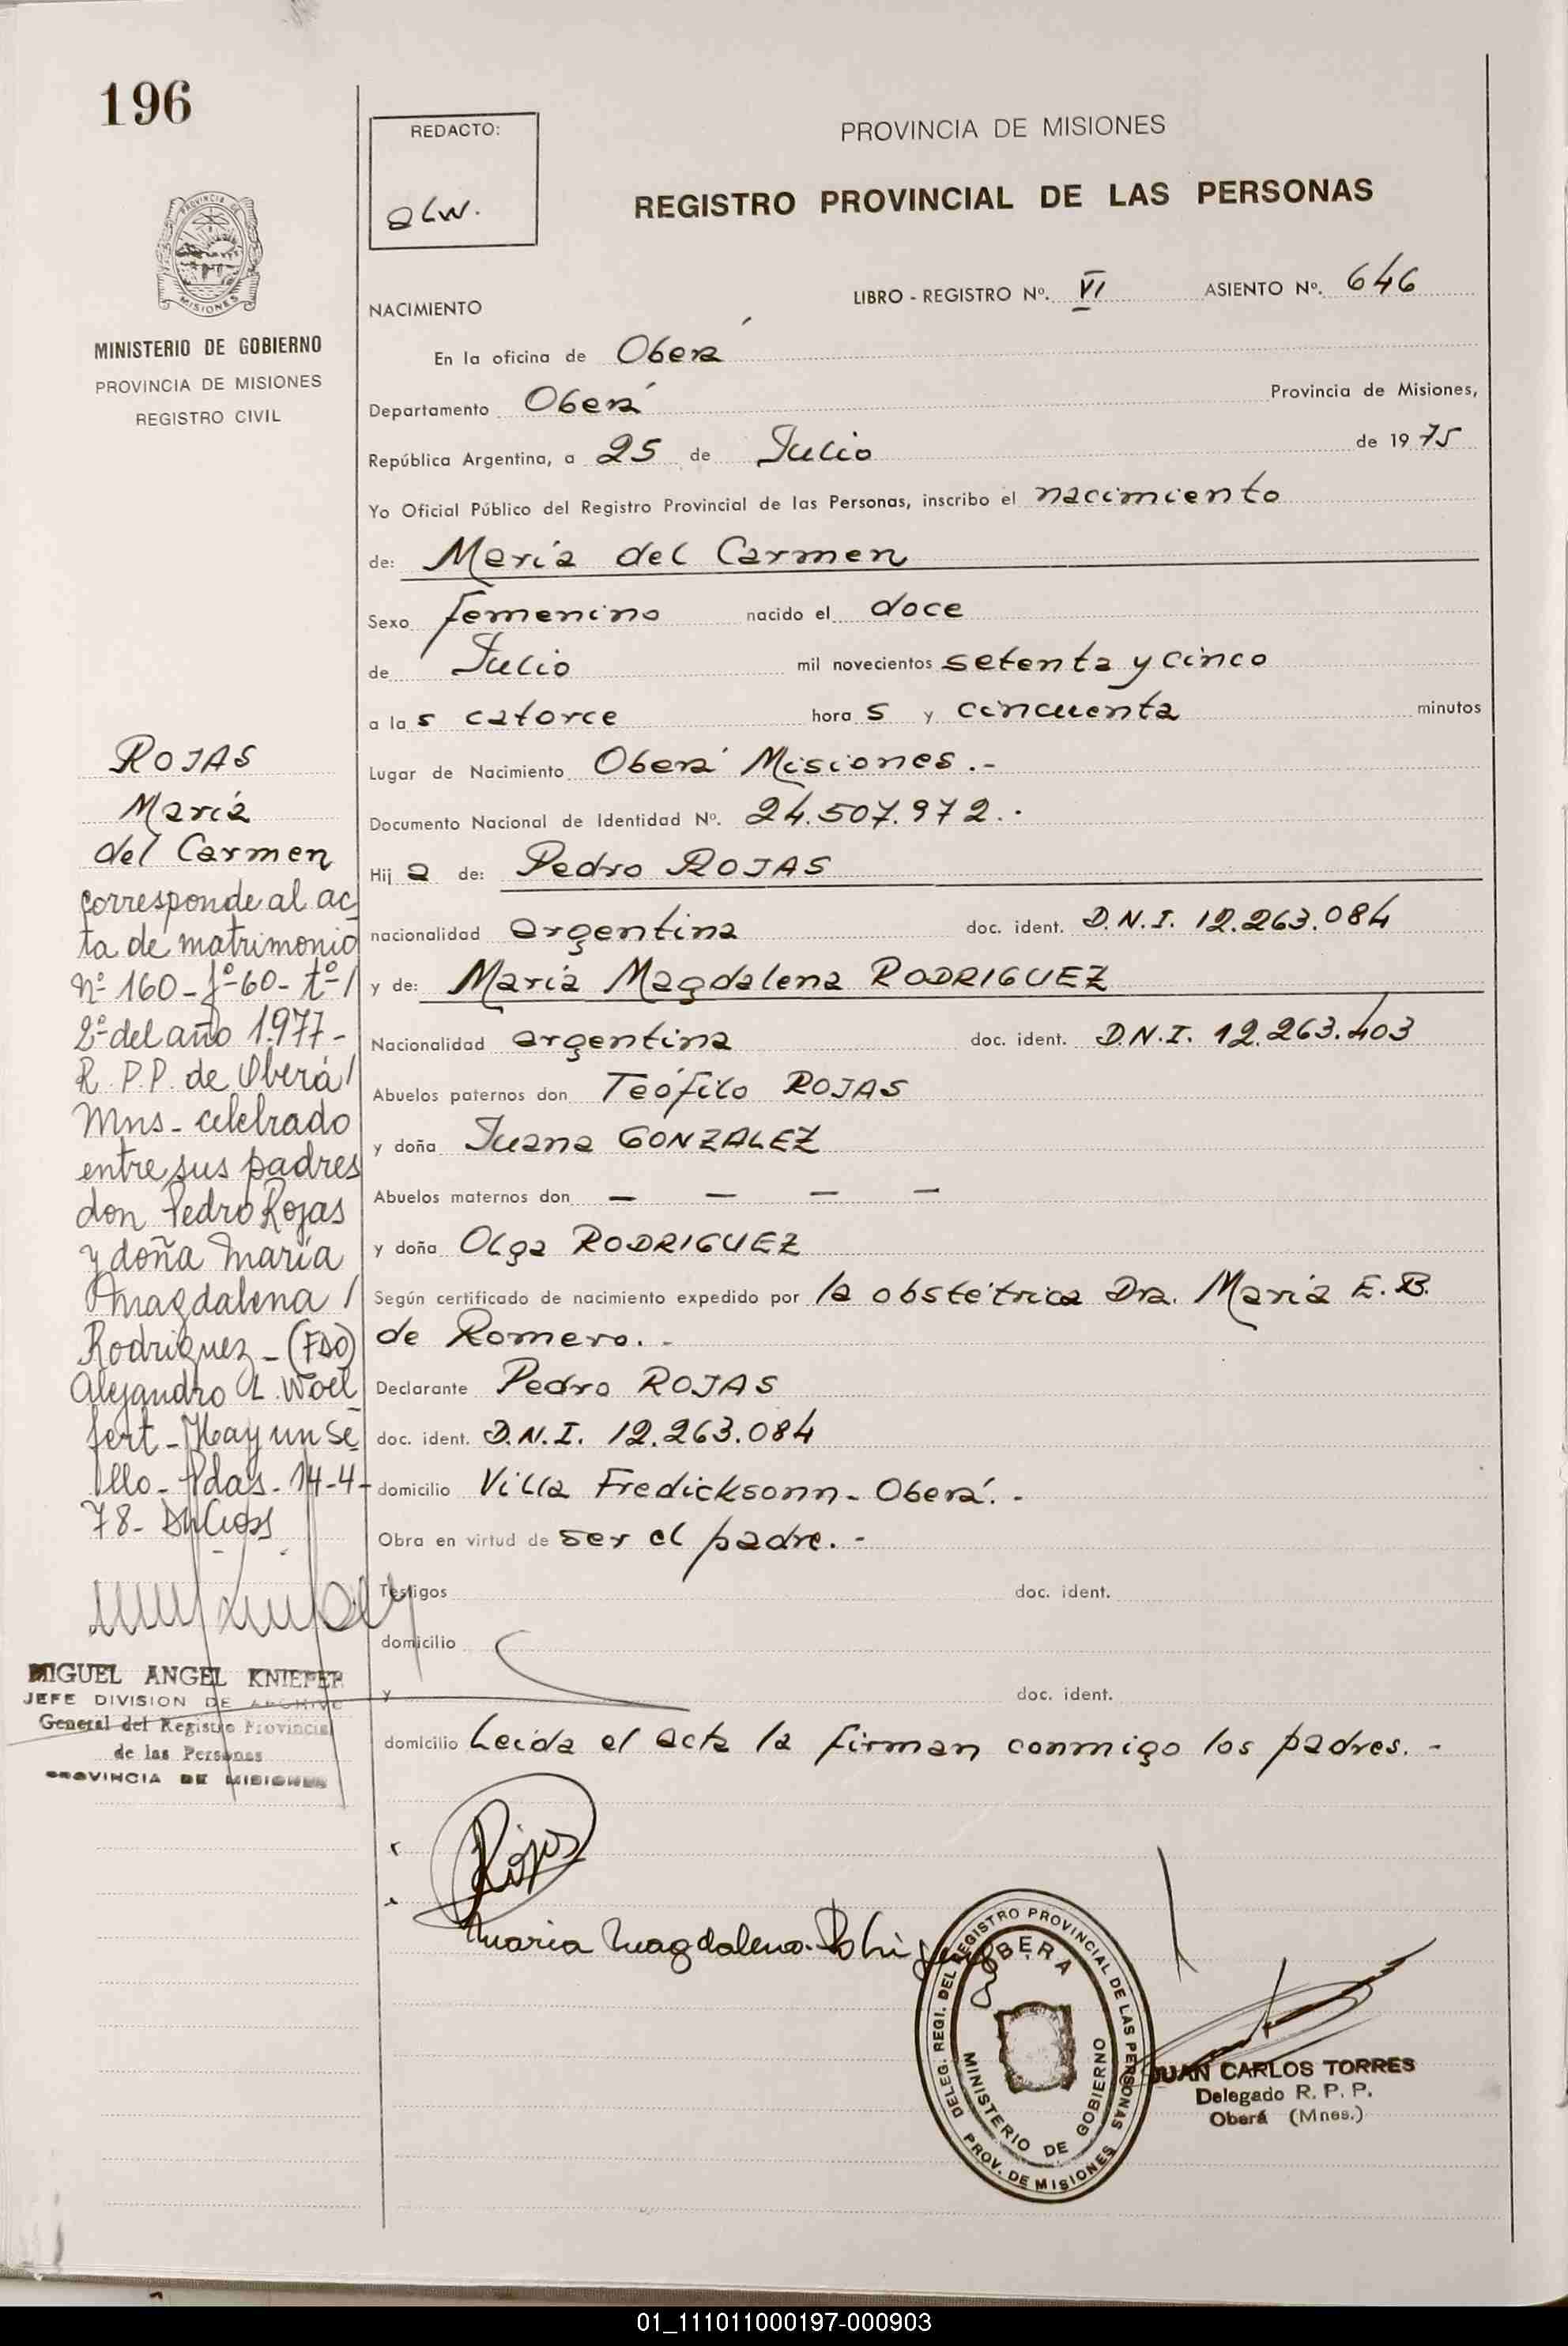 196
REDACTO:
aLW.
PROVINCIA DE MISIONES
REGISTRO PROVINCIAL DE LAS PERSONAS
MISIONES
MINISTERIO DE GOBIERNO
PROVINCIA DE MISIONES
REGISTRO CIVIL
NACIMIENTO
LIBRO - REGISTRO Nº. VI ASIENTO Nº. 646
En la oficina de Oberá
Departamento Oberá Provincia de Misiones,
República Argentina, a 25 de Julio de 1975
Yo Oficial Público del Registro Provincial de las Personas, inscribo el nacimiento
de: María del Carmen
Sexo femenino nacido el doce
de Julio mil novecientos setenta y cinco
a las catorce horas y cincuenta minutos
Lugar de Nacimiento Oberá Misiones.-
Documento Nacional de Identidad Nº. 24.507.972.-
Hija de: Pedro ROJAS
nacionalidad argentina doc. ident. D.N.I. 12.263.084
y de: María Magdalena RODRIGUEZ
Nacionalidad argentina doc. ident. D.N.I. 12.263.403
Abuelos paternos don Teófilo ROJAS
y doña Juana GONZALEZ
Abuelos maternos don — — — —
y doña Olga RODRIGUEZ
Según certificado de nacimiento expedido por la obstétrica Dra. María E. B.
de Romero.-
Declarante Pedro ROJAS
doc. ident. D.N.I. 12.263.084
domicilio Villa Fredicksonn- Oberá.-
Obra en virtud de ser el padre.-
Testigos doc. ident.
domicilio
y doc. ident.
domicilio Leída el acta la firman conmigo los padres.-
ROJAS
María
del Carmen
corresponde al ac
ta de matrimonio
Nº 160 - fº 60 - tº /
2º del año 1.977 -
R. P.P. de Oberá /
Mns - celebrado
entre sus padres
don Pedro Rojas
y doña María
Magdalena /
Rodriguez - (FDO)
Alejandro L. Woel
fert - Hay un se
llo - Pdas - 14-4-
78-
MIGUEL ANGEL KNIEPER
JEFE DIVISION DE ARCHIVO
General del Registro Provincial
de las Personas
PROVINCIA DE MISIONES
Rojas
Maria Magdalena
DELEG. REGI. DEL REGISTRO PROVINCIAL DE LAS PERSONAS
OBERA
MINISTERIO DE GOBIERNO
PROV. DE MISIONES
JUAN CARLOS TORRES
Delegado R. P. P.
Oberá (Mnes.)
01_111011000197-000903